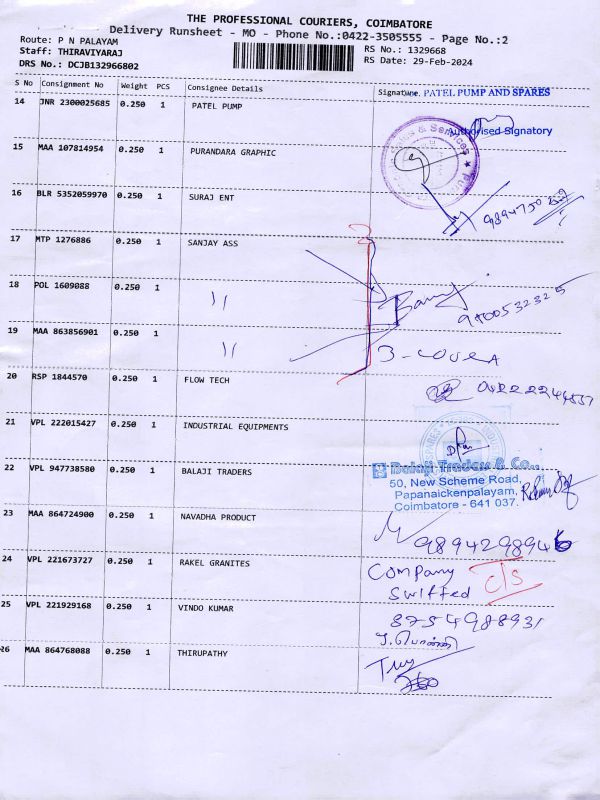 THE PROFESSIONAL COURIERS, COIMBATORE
Delivery Runsheet - MO - Phone No.:0422-3505555 - Page No.:2
Route: P N PALAYAM
Staff: THIRAVIYARAJ
DRS No.: DCJB132966802
RS No.: 1329668
RS Date: 29-Feb-2024
S No Consignment No Weight PCS Consignee Details Signature.
PATEL PUMP AND SPARES
14 JNR 2300025685 0.250 1 PATEL PUMP
Authorised Signatory
15 MAA 107814954 0.250 1 PURANDARA GRAPHIC
16 BLR 5352059970 0.250 1 SURAJ ENT
17 MTP 1276886 0.250 1 SANJAY ASS
18 POL 1609088 0.250 1 11
19 MAA 863856901 0.250 1 11
3-cover
20 RSP 1844570 0.250 1 FLOW TECH
21 VPL 222015427 0.250 1 INDUSTRIAL EQUIPMENTS
22 VPL 947738580 0.250 1 BALAJI TRADERS
Balaji Traders & Co.,
50, New Scheme Road,
Papanaickenpalayam,
Coimbatore - 641 037.
23 MAA 864724900 0.250 1 NAVADHA PRODUCT
24 VPL 221673727 0.250 1 RAKEL GRANITES
Company
Swifted
C/S
25 VPL 221929168 0.250 1 VINDO KUMAR
8754988931
26 MAA 864768088 0.250 1 THIRUPATHY